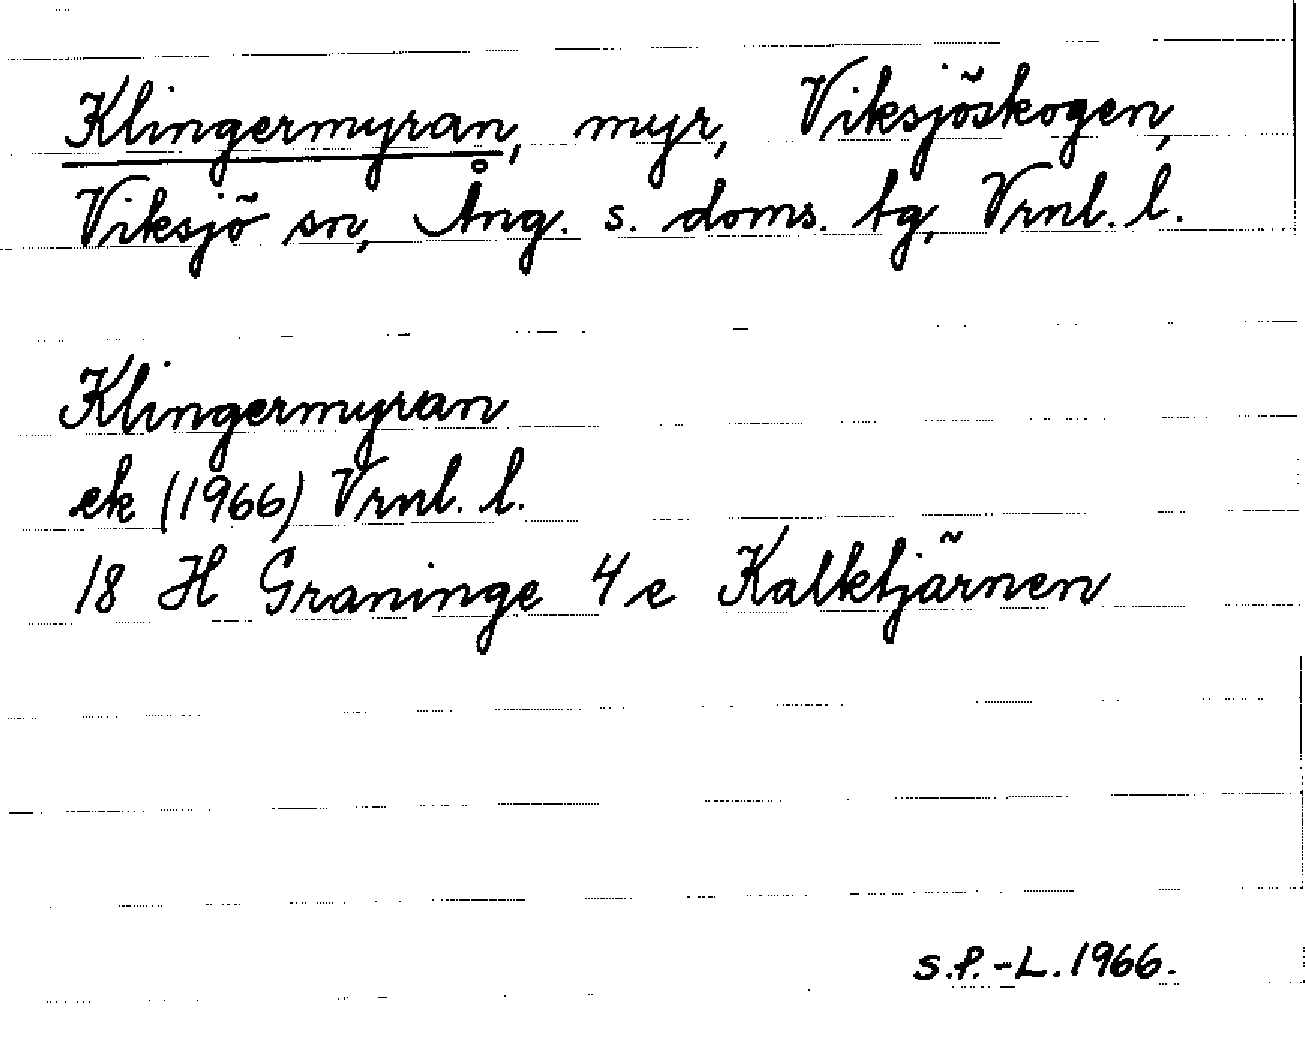 Klingermyran, myr, Viksjöskogen,
Viksjö sn, Ång. s. doms. tg, Vrnl. l.
Klingermyran
ek (1966) Vrnl. l.
18 H Graninge 4 e Kalktjärnen
S.P.-L. 1966.